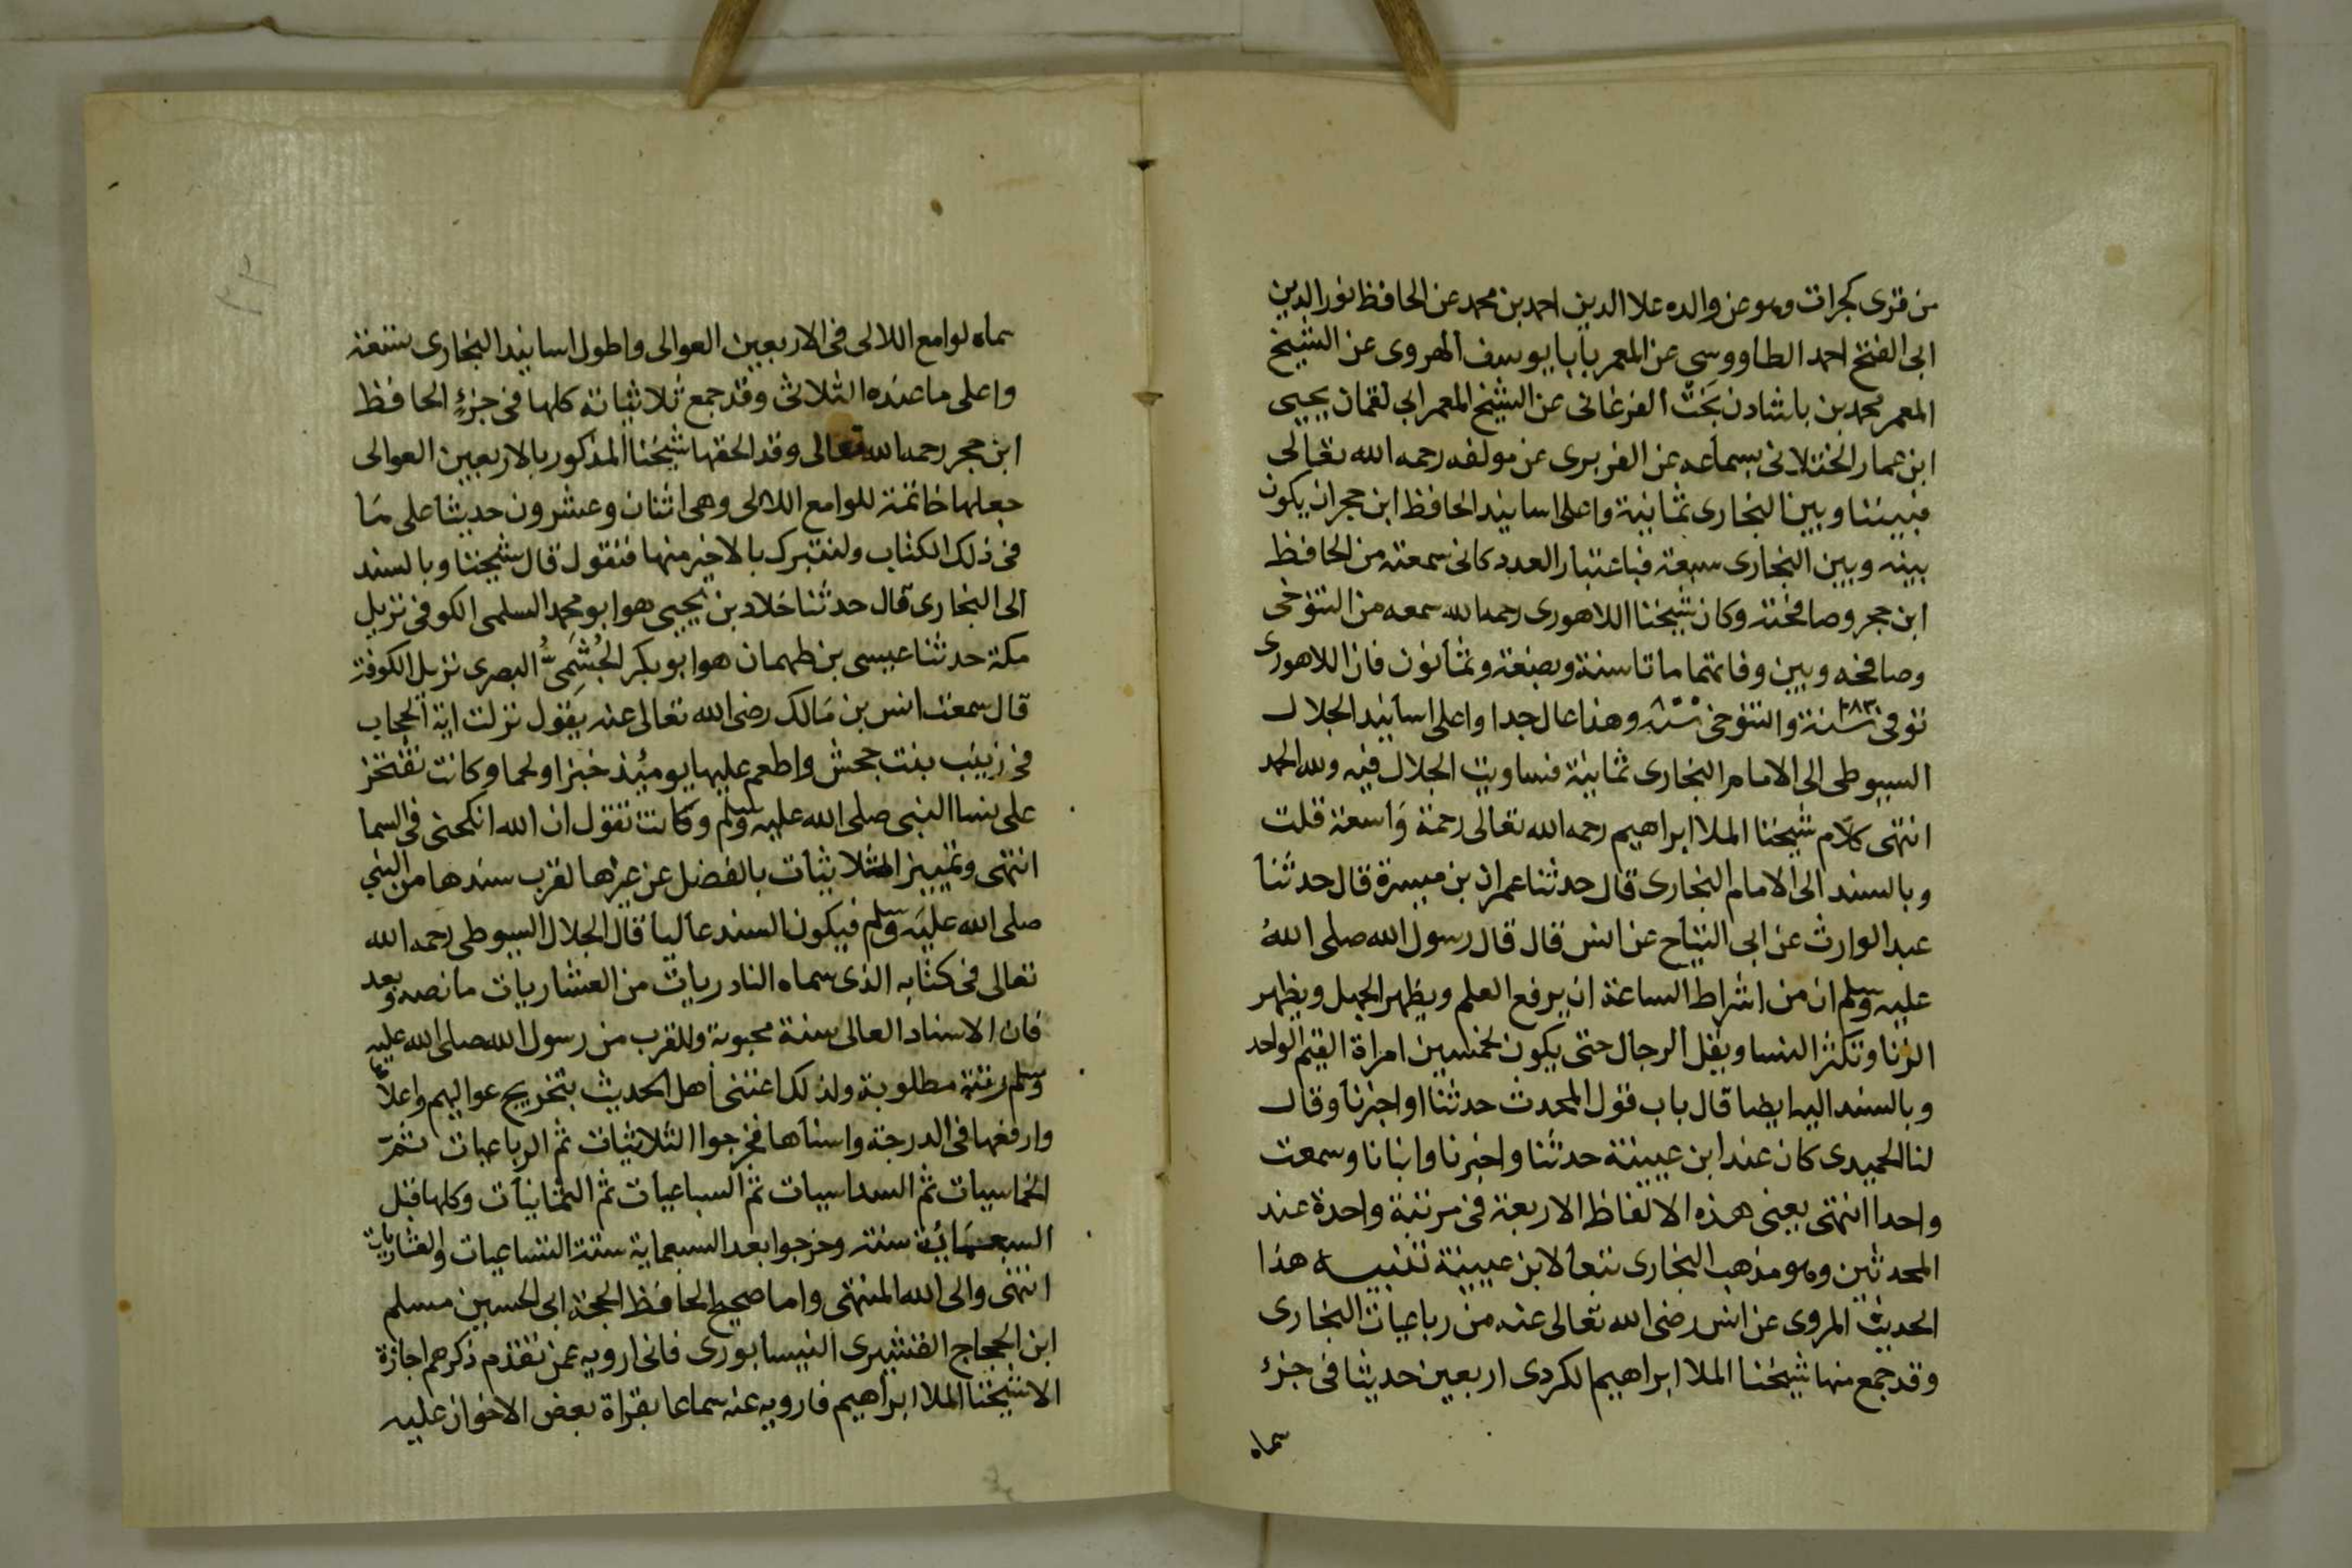 من قرى كجرات وهو عن والده علا الدين احمد بن محمد عن الحافظ نور الدين
ابى الفتح احمد الطاووسى عن المعمر بابا يوسف الهروى عن الشيخ
المعمر محمد بن باشاذن بَخْت الفرغانى عن الشيخ المعمر ابى لقمان يحيى
ابن عمار الختلانى بسماعه عن الفربرى عن مولفه رحمه الله تعالى
فبيننا وبين البخارى ثمانية واعلى اسانيد الحافظ ابن حجر ان يكون
بينه وبين البخارى سبعة فباعتبار العدد كانى سمعته من الحافظ
ابن حجر وصافحته وكان شيخنا اللاهورى رحمه الله سمعه من التنوخى
وصافحه وبين وفاتهما ماتا سنة وبضعة وثمانون فان اللاهورى
توفى سنة ١٠٨٣ والتنوخى سنة وهذا عال جدا واعلى اسانيد الجلال
السيوطى الى الامام البخارى ثمانية فساويت الجلال فيه ولله الحمد
انتهى كلام شيخنا الملا ابراهيم رحمه الله تعالى رحمة وَاسعة قلت
وبالسند الى الامام البخارى قال حدثنا عمران بن ميسرة قال حدثنا
عبد الوارث عن ابى التياح عن انس قال قال رسول الله صلى الله
عليه وسلم ان من اشراط الساعة ان يرفع العلم ويظهر الجهل ويظهر
الزنا وتكثر النسا ويقل الرجال حتى يكون لخمسين امراة القيم الواحد
وبالسند اليه ايضا قال باب قول المحدث حدثنا او اخبرنا وقال
لنا الحميدى كان عند ابن عيينة حدثنا واخبرنا وانبانا وسمعت
واحدا انتهى يعنى هذه الالفاظ الاربعة فى مرتبة واحدة عند
المحدثين وهو مذهب البخارى تبعا لابن عيينة تنبيه هذا
الحديث المروى عن انس رضى الله تعالى عنه من رباعيات البخارى
وقد جمع منها شيخنا الملا ابراهيم الكردى اربعين حديثا فى جزء
سماه
سماه لوامع اللالى فى الاربعين العوالى واطول اسانيد البخارى تسعة
واعلى ما عنده الثلاثى وقد جمع ثلاثياته كلها فى جزءٍ الحافظ
ابن حجر رحمه الله تعالى وقد الحقها شيخنا المذكور بالاربعين العوالى
جعلها خاتمة للوامع اللالى وهى اثنان وعشرون حديثا على مَا
فى ذلك الكتاب ولنتبرك بالاخير منها فنقول قال شيخنا وبالسند
الى البخارى قال حدثنا خلاد بن يحيى هو ابو محمد السلمى الكوفى نزيل
مكة حدثنا عيسى بن طهمان هو ابو بكر الجُشَمِىُّ البصرى نزيل الكوفة
قال سمعت انس بن مَالك رضى الله تعالى عنه يقول نزلت اية الحجاب
فى زينب بنت جحش واطعم عليها يوميذ خبزا ولحما وكانت تفتخر
على نسا النبى صلى الله عليه وسلم وكانت تقول ان الله انكحنى فى السما
انتهى وتمييز الثلاثيات بالفضل عن غيرها لقرب سندها من النبي
صلى الله عليَه وسلم فيكون السند عاليا قال الجلال السيوطى رحمه الله
تعالى فى كتابه الذى سماه النادريات من العشاريات ما نصه وبعد
فان الاسناد العالى سنة محبوبة وللقرب من رسول الله صلى الله عليه
وسلم رتبة مطلوبة ولذلك اعتنى اهل الحديث بتخريج عواليهم واعلاها
وارفعها فى الدرجة واسناها فخرجوا الثلاثيات ثم الرباعيات ثمّ
الخماسيات ثم السداسيات ثم السباعيات ثم الثمانيات وكلها قبل
السبعمَايُة سنته وخرجوا بعد السبعماية سنة التساعيات والعشاريات
انتهى والى الله المنتهى واما صحيح الحافظ الحجة ابى الحسين مسلم
ابن الحجاج القشيرى النيسابورى فانى ارويه عمن تقدم ذكرهم اجازة
الا شيخنا الملا ابراهيم فارويه عنه سماعا بقراة بعض الاخوان عليه